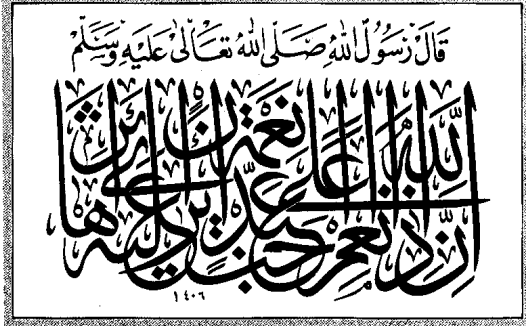 قَالَ رَسُولُ اللهِ صَلَّى اللهُ تَعَالَى عَلَيْهِ وَسَلَّم
إنّ الله إذا أنعم على عبد نعمة أحب أن يرى أثرها عليه
١٤٠٦